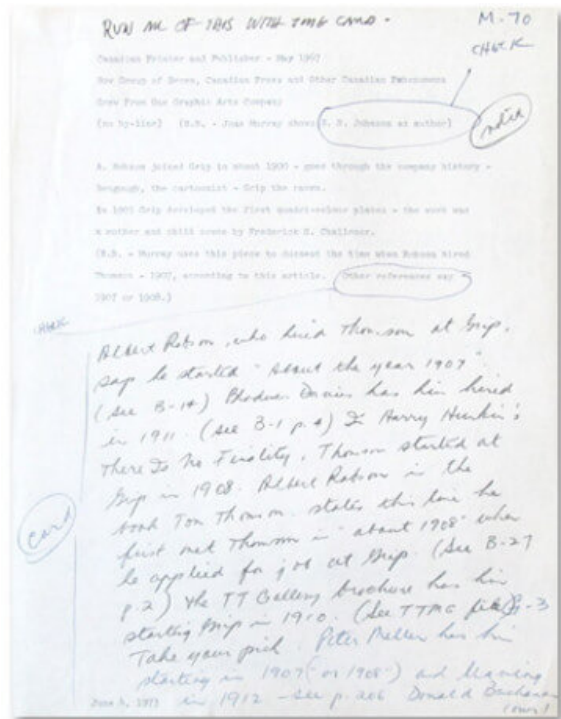 RUN ALL OF THIS WITH TMG CARD.
M-70
CHECK
Canadian Printer and Publisher - May 1967
How Group of Seven, Canadian Press and Other Canadian Phenomena
Grew From One Graphic Arts Company
[no by-line] (N.B. - Joan Murray shows E. R. Johnson at author)
noted
A. Robson joined Grip in about 1900 - goes through the company history -
Bengough, the cartoonist - Grip the raven.
In 1901 Grip developed the first quadri-colour plates - the work was
a mother and child scene by Frederick S. Challener.
(N.B. - Murray uses this piece to document the time when Robson hired
Thomson - 1907, according to this article. Other references say
1907 or 1908.)
CHECK
Albert Robson, who hired Thomson at Grip,
says he started "about the year 1907"
(see B-14) Blodwen Davies has him hired
in 1911. (see B-1 p.4) In Harry Hunkin's
There Is No Finality, Thomson started at
Grip in 1908. Albert Robson in the
book Tom Thomson states this time he
first met Thomson in "about 1908" when
he applied for job at Grip. (See B-27
p.2) the TT Gallery brochure has him
starting Grip in 1910. (See TTMG file) G-3
Take your pick. Peter Mellen has him
starting in 1907 (or 1908) and leaving
in 1912 - see p. 206 Donald Buchanan
card
June 5, 1973